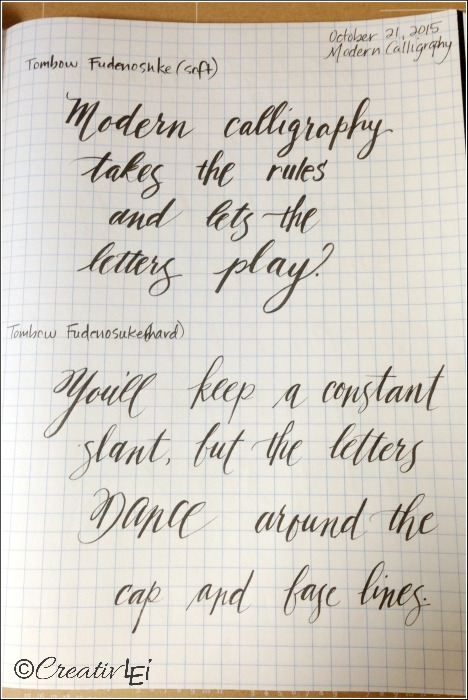 October 21, 2015
Modern Calligraphy
Tombow Fudenosuke (soft)
Modern calligraphy
takes the rules
and lets the
letters play?
Tombow Fudenosuke (hard)
You'll keep a constant
slant, but the letters
Dance around the
cap and base lines.
©CreativLEi